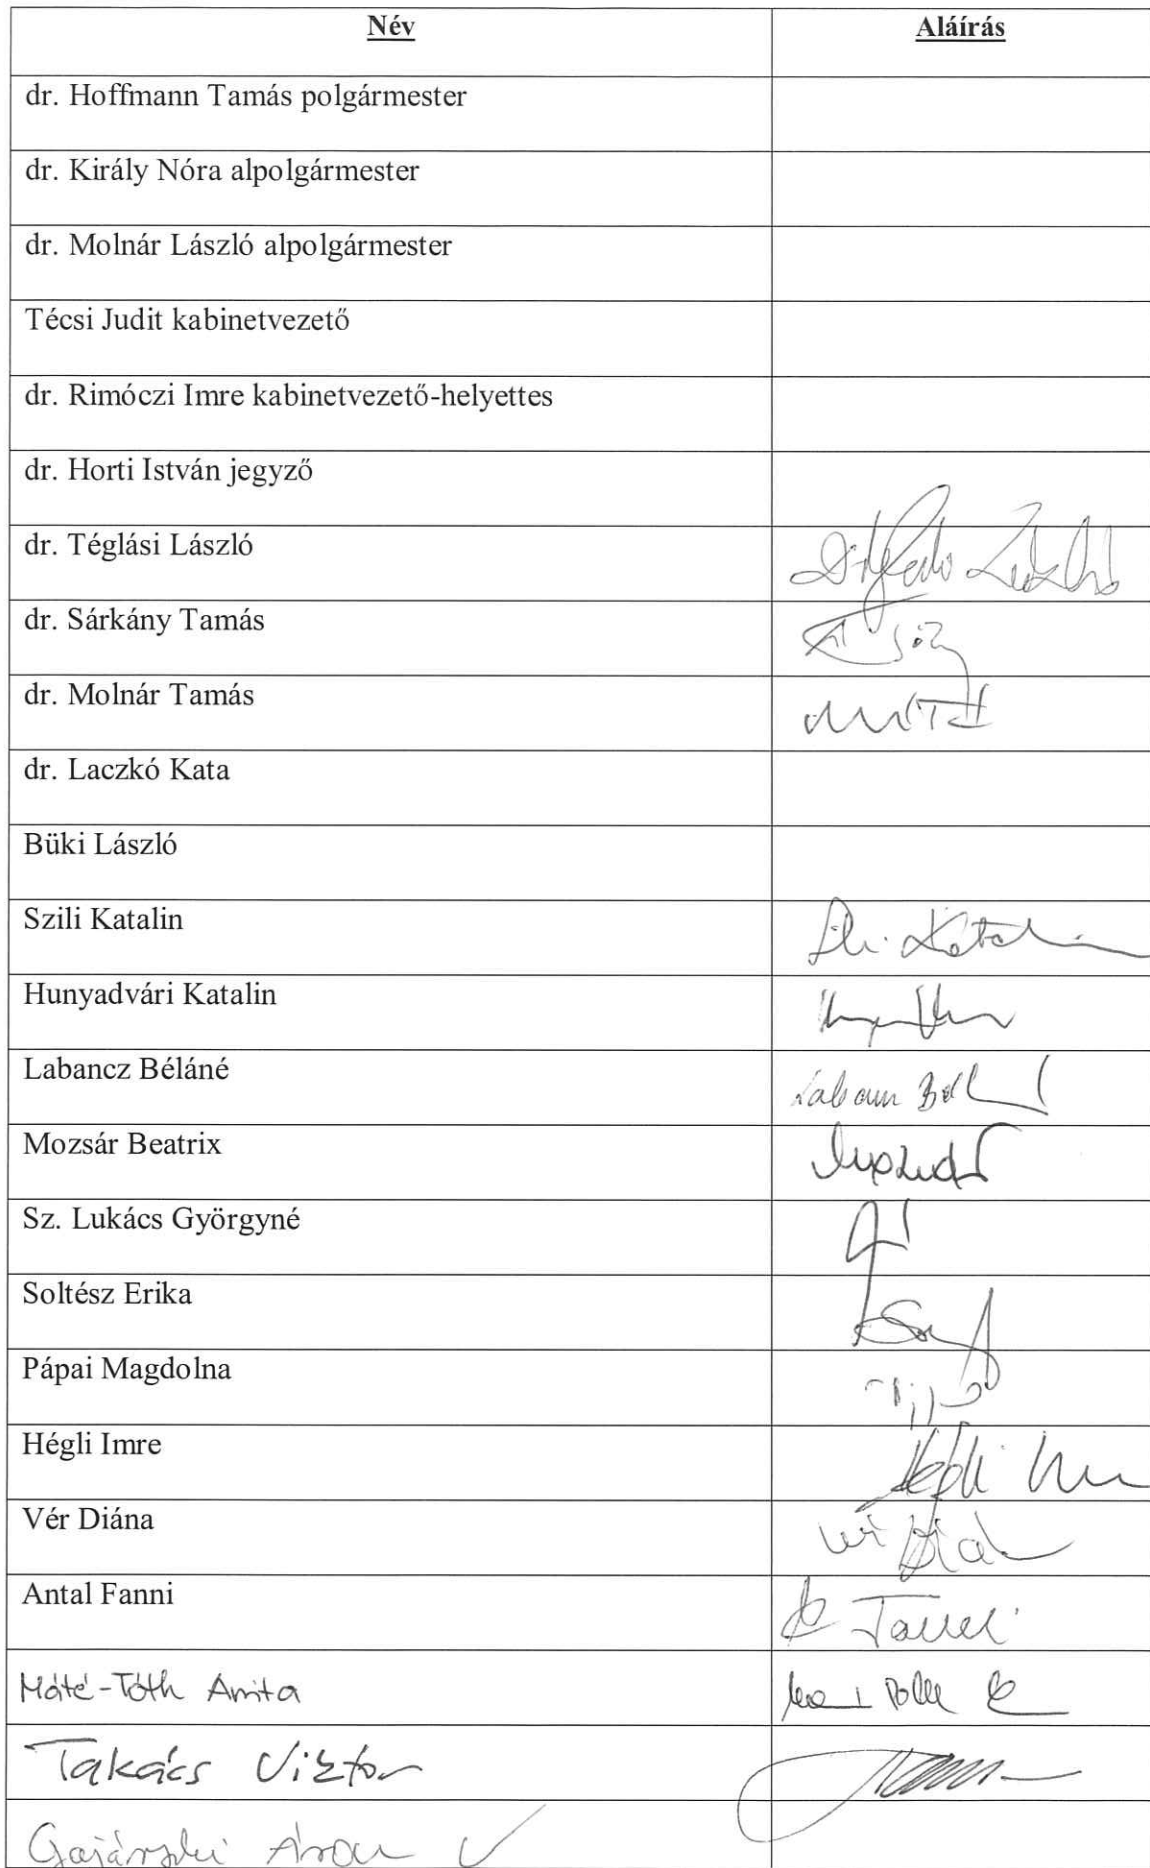 Név Aláírás
dr. Hoffmann Tamás polgármester
dr. Király Nóra alpolgármester
dr. Molnár László alpolgármester
Técsi Judit kabinetvezető
dr. Rimóczi Imre kabinetvezető-helyettes
dr. Horti István jegyző
dr. Téglási László
dr. Sárkány Tamás
dr. Molnár Tamás
dr. Laczkó Kata
Büki László
Szili Katalin
Hunyadvári Katalin
Labancz Béláné
Mozsár Beatrix
Sz. Lukács Györgyné
Soltész Erika
Pápai Magdolna
Hégli Imre
Vér Diána
Antal Fanni
Máté-Tóth Anita
Takács Viktor
Áron